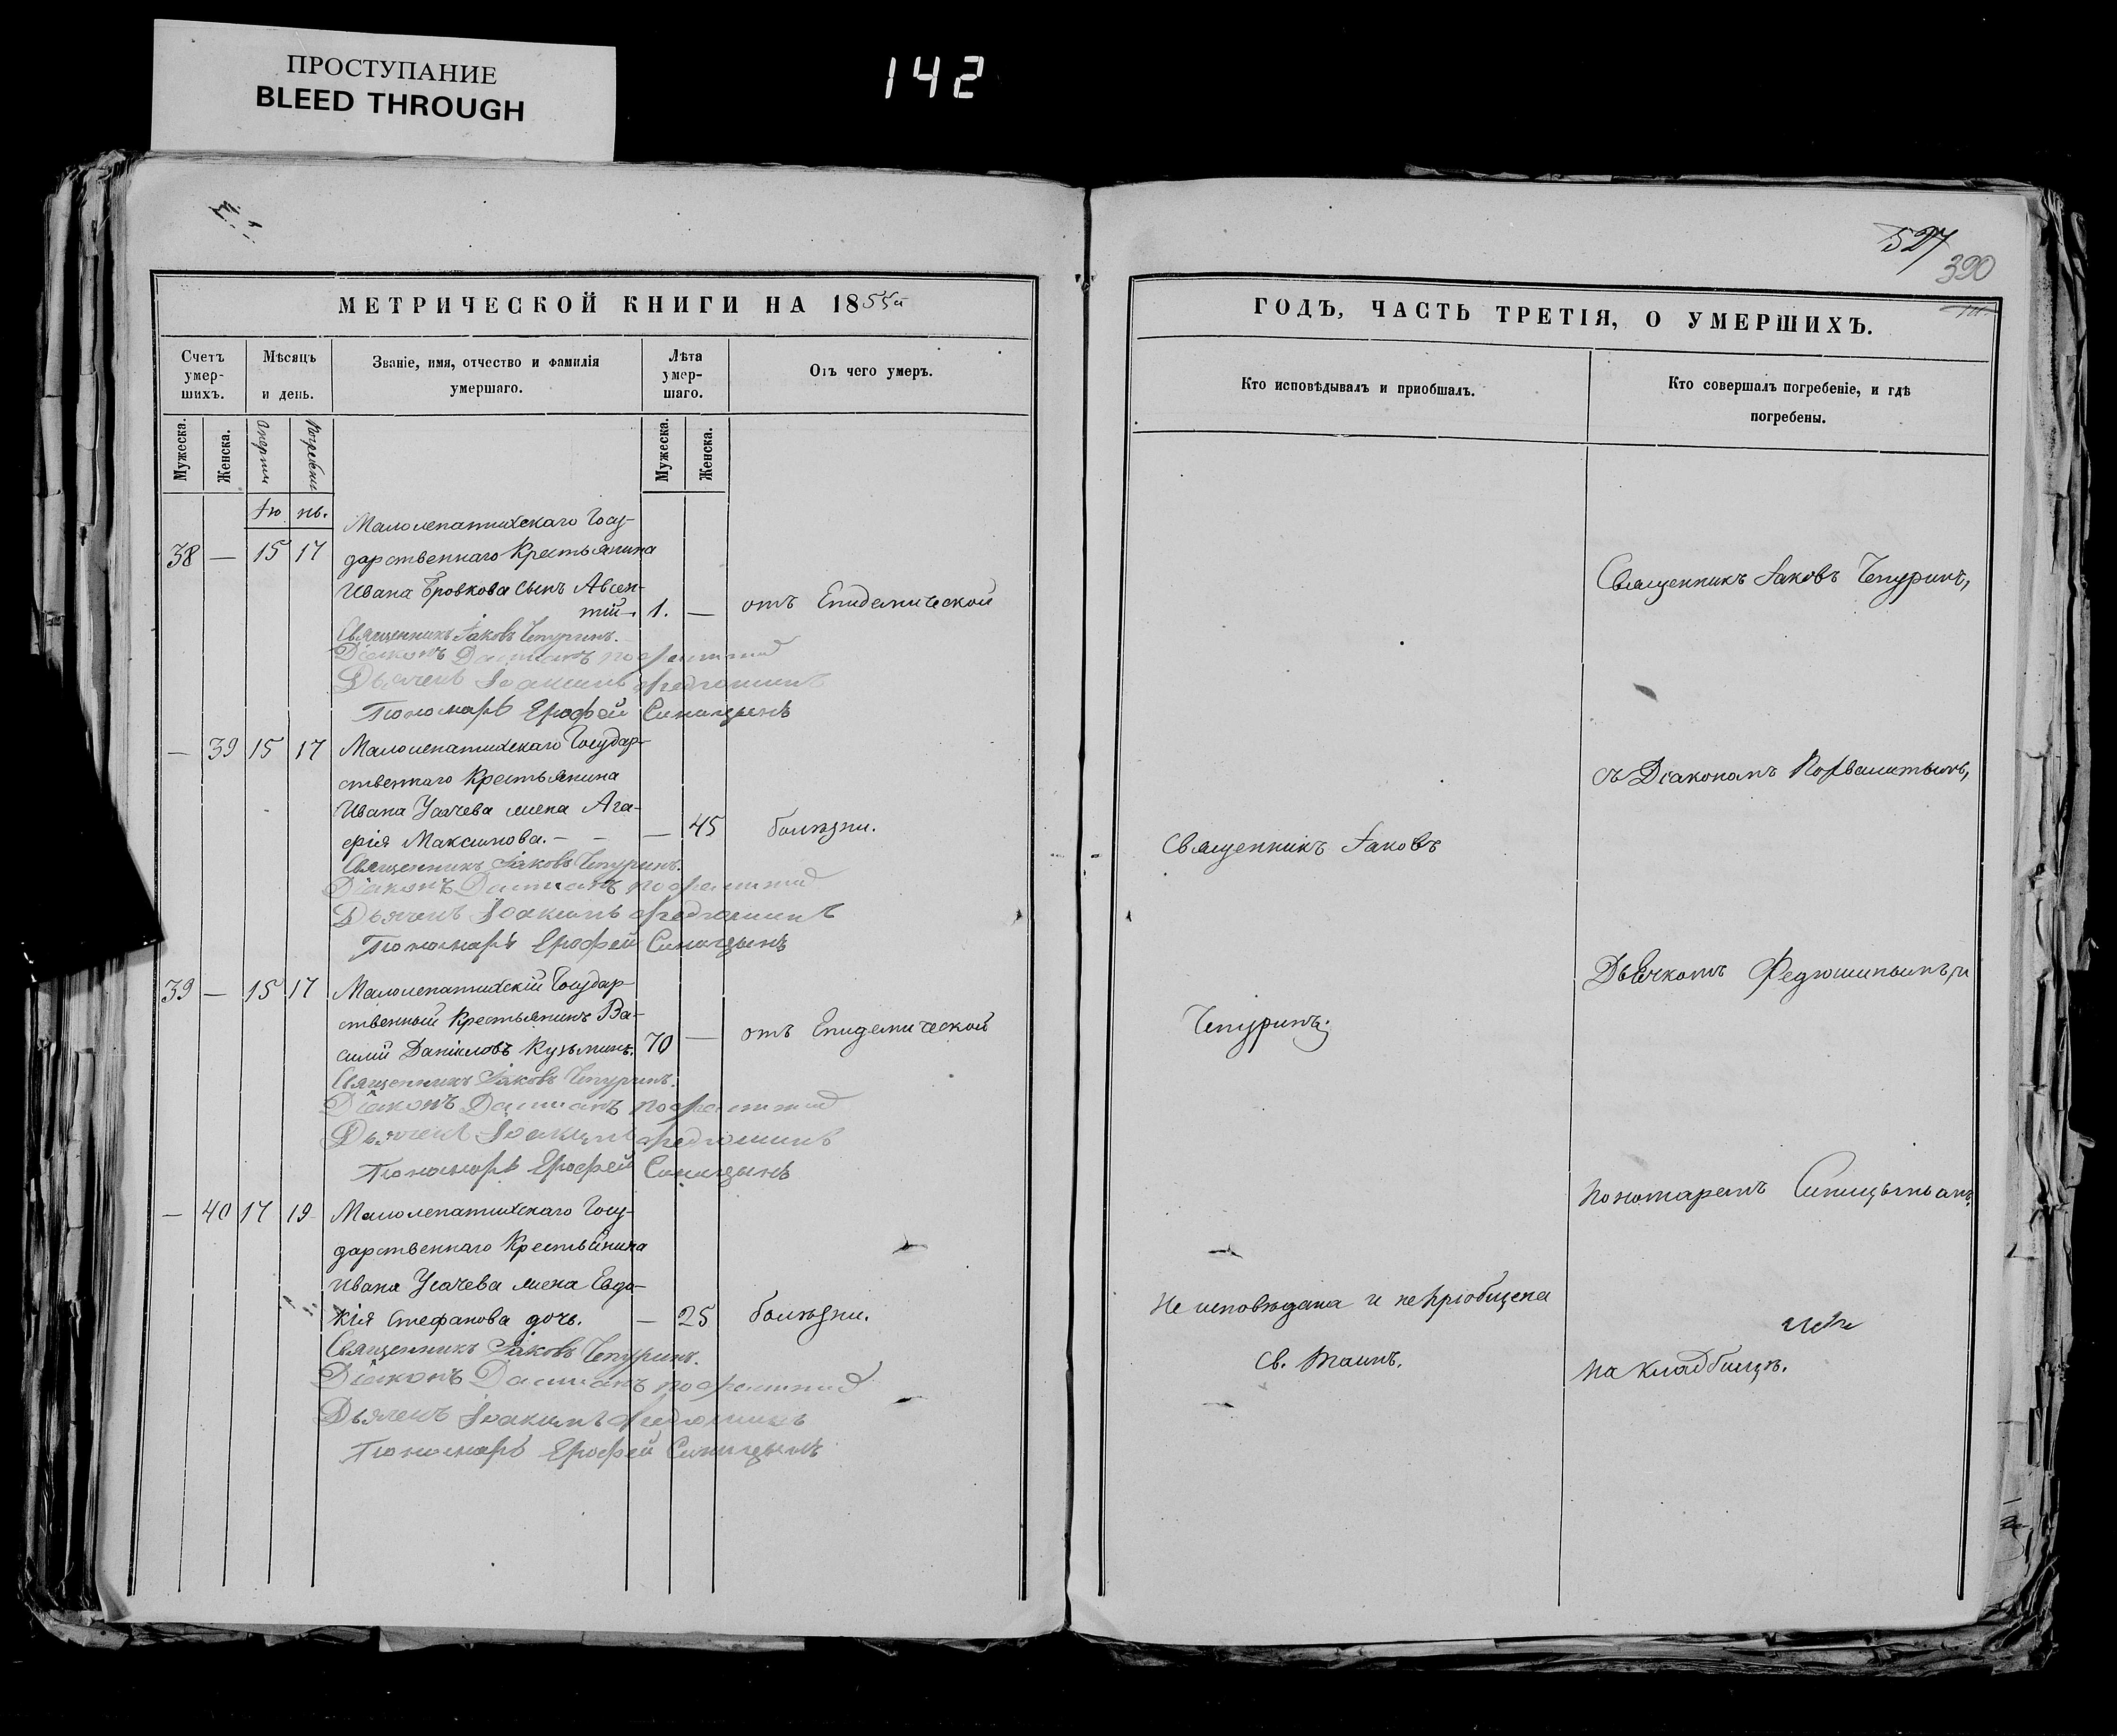 ПРОСТУПАНИЕ
BLEED THROUGH
142
527
390
МЕТРИЧЕСКОЙ КНИГИ НА 1855й
Счетъ умер-шихъ.
Мѣсяцъ и день.
Званіе, имя, отчество и фамилія умершаго.
Лѣта умер-шаго.
Отъ чего умеръ.
Мужеска.
Женска.
Смерти
Погребенія
Мужеска.
Женска.
Іюнь.
Малолепатихскаго Госу-
38 — 15 17 дарственнаго Крестьянина
Ивана Бровкова сынъ Авсен-
тій. 1. — отъ Епидемической
Священникъ Іаковъ Чепуринъ.
Діаконъ Даміанъ
Дьячекъ Іоакимъ Федюшинъ
Пономарь Ерофей Синицынъ
— 39 15 17 Малолепатихскаго Государ-
ственнаго Крестьянина
Ивана Усачева жена Ага-
фія Максимова. — — — 45 болѣзни.
Священникъ Іаковъ Чепуринъ.
Діаконъ Даміанъ
Дьячекъ Іоакимъ Федюшинъ
Пономарь Ерофей Синицынъ
39 — 15 17 Малолепатихскій Государ-
ственный Крестьянинъ Ва-
силій Даніиловъ Кузьминъ. 70 — отъ Епидемической
Священникъ Іаковъ Чепуринъ.
Діаконъ Даміанъ
Дьячекъ Іоакимъ Федюшинъ
Пономарь Ерофей Синицынъ
— 40 17 19 Малолепатихскаго Госу-
дарственнаго Крестьянина
Ивана Усачева жена Евдо-
кія Стефанова дочь. — 25 болѣзни.
Священникъ Іаковъ Чепуринъ.
Діаконъ Даміанъ
Дьячекъ Іоакимъ Федюшинъ
Пономарь Ерофей Синицынъ
ГОДЪ, ЧАСТЬ ТРЕТІЯ, О УМЕРШИХЪ.
Кто исповѣдывалъ и пріобщалъ.
Кто совершалъ погребеніе, и гдѣ погребены.
Священникъ Іаковъ
Чепуринъ;
Не исповѣдана и не пріобщена
Св. Таинъ.
Священникъ Іаковъ Чепуринъ,
съ Діакономъ
Дьячкомъ Федюшинымъ, и
Пономаремъ Синицынымъ
на кладбищѣ.